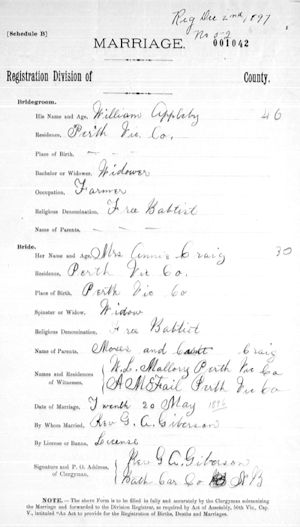 Reg Dec 2nd, 1897
[Schedule B]
No 52
MARRIAGE.
001042
Registration Division of
County.
Bridegroom.
His Name and Age, William Appleby 46
Residence, Perth Vic Co.
Place of Birth. - - -
Bachelor or Widower, Widower
Occupation, Farmer
Religious Denomination, Free Baptist
Name of Parents. - - -
Bride.
Her Name and Age, Mrs Annie Craig 30
Residence, Perth Vic Co.
Place of Birth, Perth Vic Co
Spinster or Widow, Widow
Religious Denomination, Free Baptist
Name of Parents, Moses and Craig
Names and Residences of Witnesses, W. L. Mallory Perth Vic Co
A McFail Perth Vic Co
Date of Marriage, Twenth 20 May
By Whom Married, Rev G. A. Giberson
By License or Banns, License
Signature and P. O. Address of Clergyman, Rev G A Giberson
Bath Car Co N B
NOTE. — The above Form is to be filled in fully and accurately by the Clergyman solemnizing
the Marriage and forwarded to the Division Registrar, as required by Act of Assembly, 50th Vic, Cap.
V, intituled "An Act to provide for the Registration of Births, Deaths and Marriages.